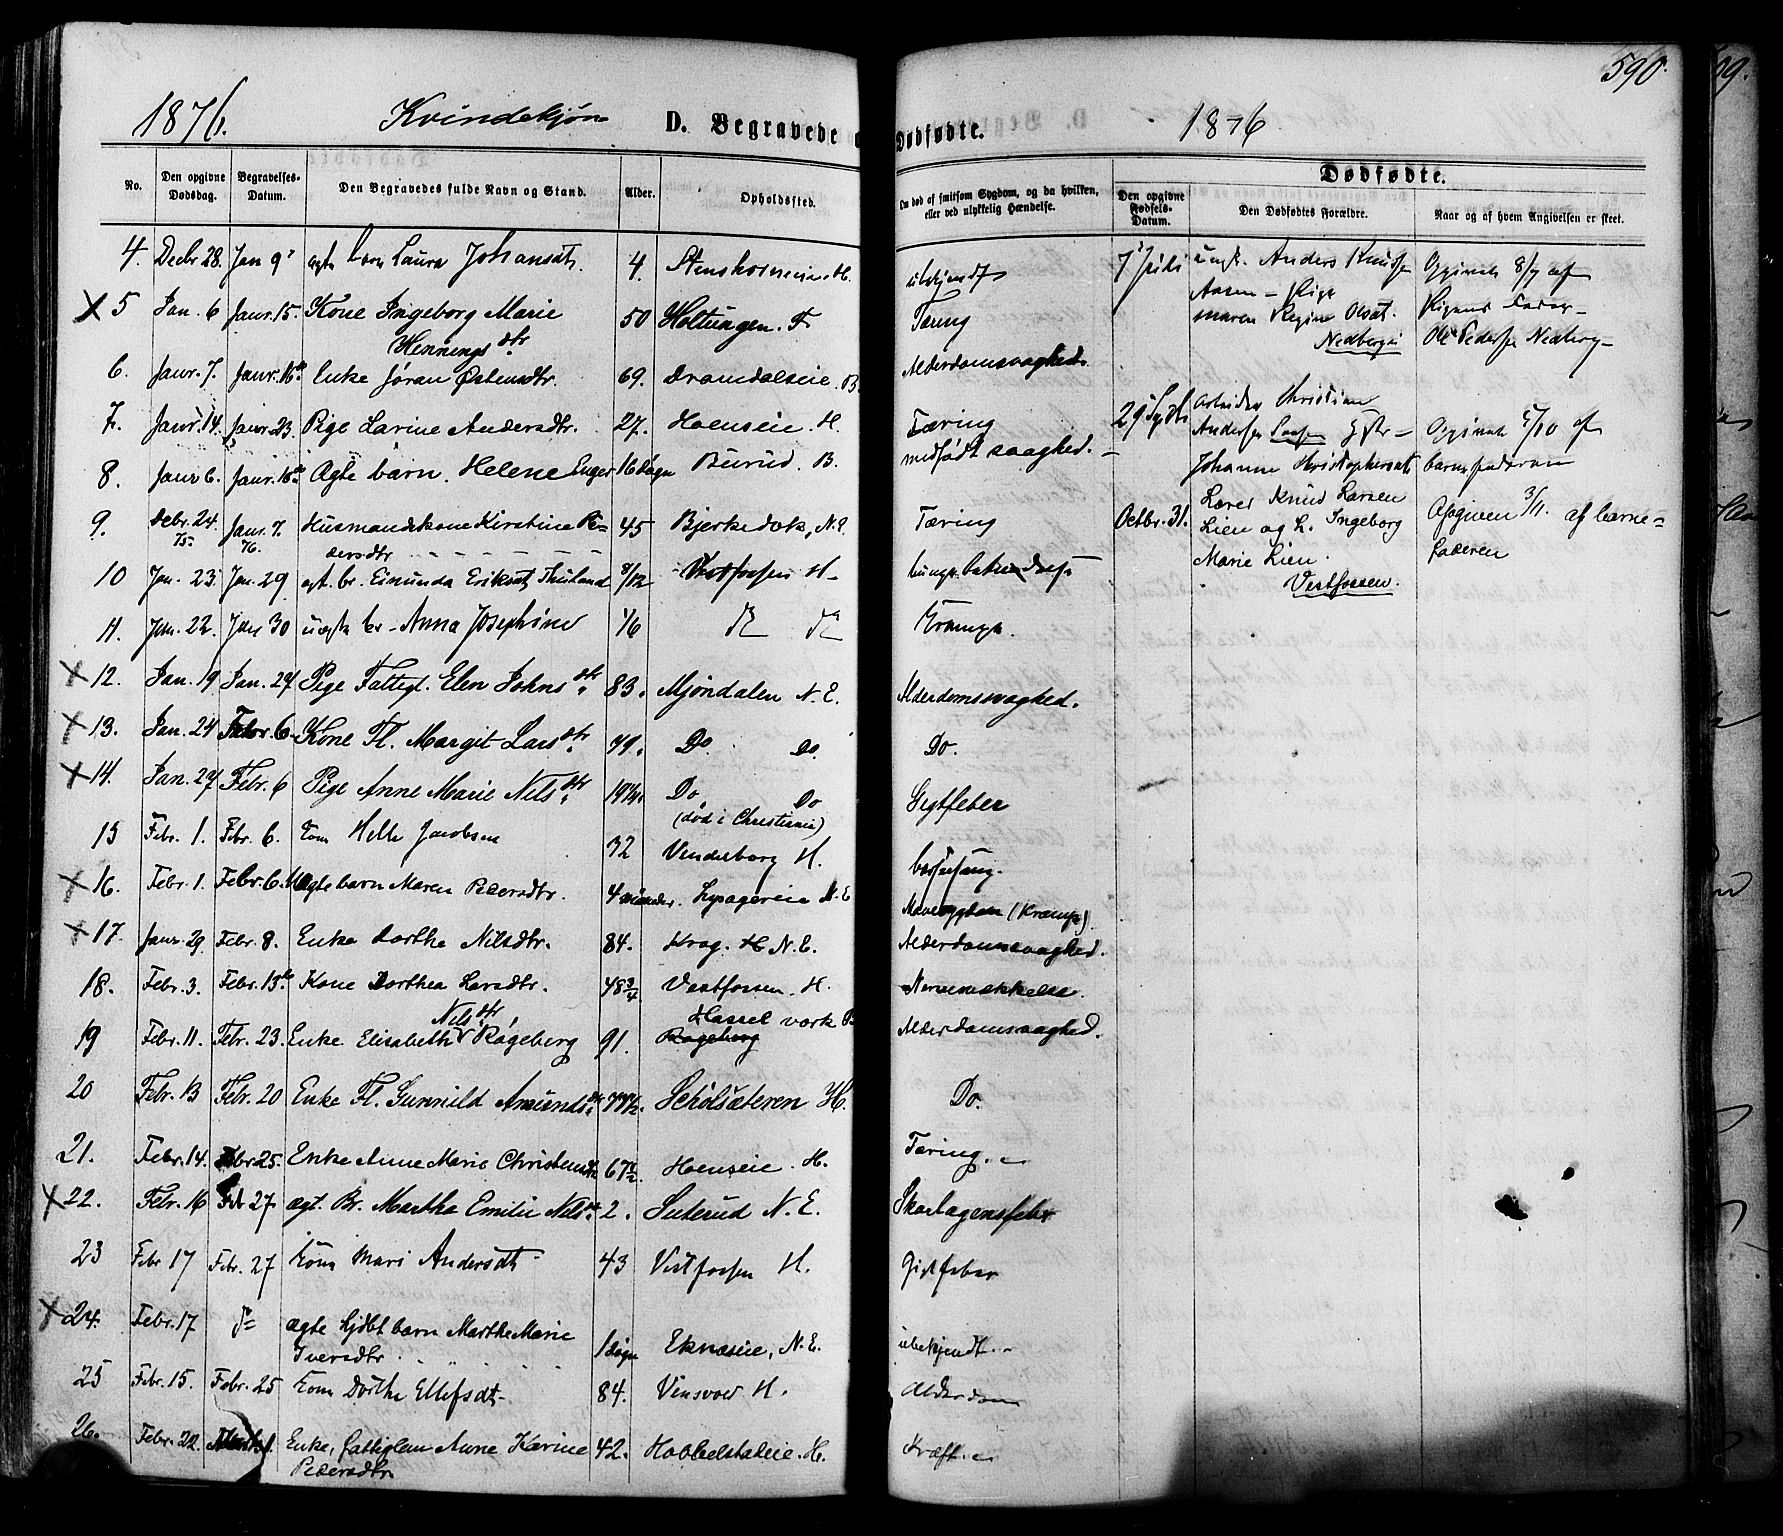 590.
1876.
Kvindekjøn
D. Begravede
Dødfødte.
1876
No.
Den opgivne Dødsdag.
Begravelses-Datum.
Den Begravedes fulde Navn og Stand.
Alder.
Opholdssted.
Om død af smitsom Sygdom, og da hvilken, eller ved ulykkelig Hændelse.
Dødfødte.
Den opgivne Fødsels-Datum.
Den Dødfødtes Forældre.
Naar og af hvem Angivelsen er skeet.
4. Decbr 28. Jan 9 ægte barn Laura Johansdt. 4. H. ubekjendt
5 Jan. 6 Janr. 15. Kone Ingeborg Marie 50 Holtungen. F Tæring
Hennings dtr.
6. Janr. 7. Janr. 16de Enke Jøran Østensdtr. 69. Dramdalseie. B Alderdomsvaghed.
7. Janr. 14. Janr. 23. Pige Larine Andersdtr. 27. Hoenseie. H. Tæring
8. Janr 6. Janr. 16de Ægte barn. Helene Enger 16 Døgn Burud. B. medfødt svaghed.
9. Debr. 24. 75 Janr. 7. 76. Husmandskone Kirstine Pe= 45 Bjerkedok, N.E. Tæring
dersdtr
10 Jan. 23. Jan. 29 ægt. br. Eriksdt. 8/12 Vestfossen H.
11. Jan. 22. Jan 30 uægte br. Anna Josephine 1/6 do do Krampe.
12. Jan. 19 Jan. 27 Pige Fattigl. Elen Johns dtr. 83. Mjøndalen N. E. Alderdomsvaghed.
13. Jan. 24 Febr. 6 Kone Fl. Margit Lars dtr. 79. Do Do. Do.
14. Jan. 27 Febr. 6 Pige Anne Marie Nils dtr. Do Do Gigtfeber
(død i Christiania)
15 Febr. 1. Febr. 6. Kone Helle Jacobsen 32 H.
16. Febr. 1. Febr. 6. Ægte barn Maren Pedersdtr. 4 N.E (Krampe).
17. Janr. 29 Febr. 8. Enke Dorthe Nilsdtr. 84. Krog. N.E. Alderdomsvaghed.
18. Febr. 3. Febr. 13de Kone Dorthea Larsdtr. 48 3/4 Vestfossen. H.
19 Febr. 11. Febr. 23. Enke Elisabeth Nils dtr. Røgeberg 91. Hassel værk Alderdomsvaghed.
Røgeberg
20 Febr. 13 Febr. 20 Enke Fl. Gunnild Amunds dtr. 77 1/2. H. Do.
21. Febr. 14. Febr 25. Enke Anne Marie Christensdtr 67 1/2. Hoenseie. H. Tæring.
22. Febr. 16 Febr 27 ægt. Br. Martha Emilie Nils dtr. 2. Seterud N. E. Skarlagensfeber
23 Febr 17 Febr. 27 Kone Mari Andersdt. 43 Vestfossen H. Gigtfeber
24. Febr. 17 do ægte hjdbt barn Marthe Marie 1 døgn Eknæseie, N.E. ubekjendt.
Iversdtr.
25 Febr. 15. Febr. 25 Kone Dorthe Ellefsdt. 84. H. Alderdom
26. Febr. 22. Enke, Fattiglem Anne Karine 42. Hobbelstadeie. H. Kræft.
Pedersdtr
7 Juli ungk. Anders Knudsen Opgivet 8/7 af
Aasen – Pige Pigens Fader –
Maren Regine Olsdt. Ole Pedersen Nedberg
Nedberg
29 Septb. Arbeider Christian
Andersen Opgivet 5/10 af
Johanne Christophersdt. barnefaderen
Octbr. 31. Lærer Knud Larsen Opgiven 3/11. af barne=
Lien og h. Ingeborg faderen
Marie Lien.
Vestfossen.